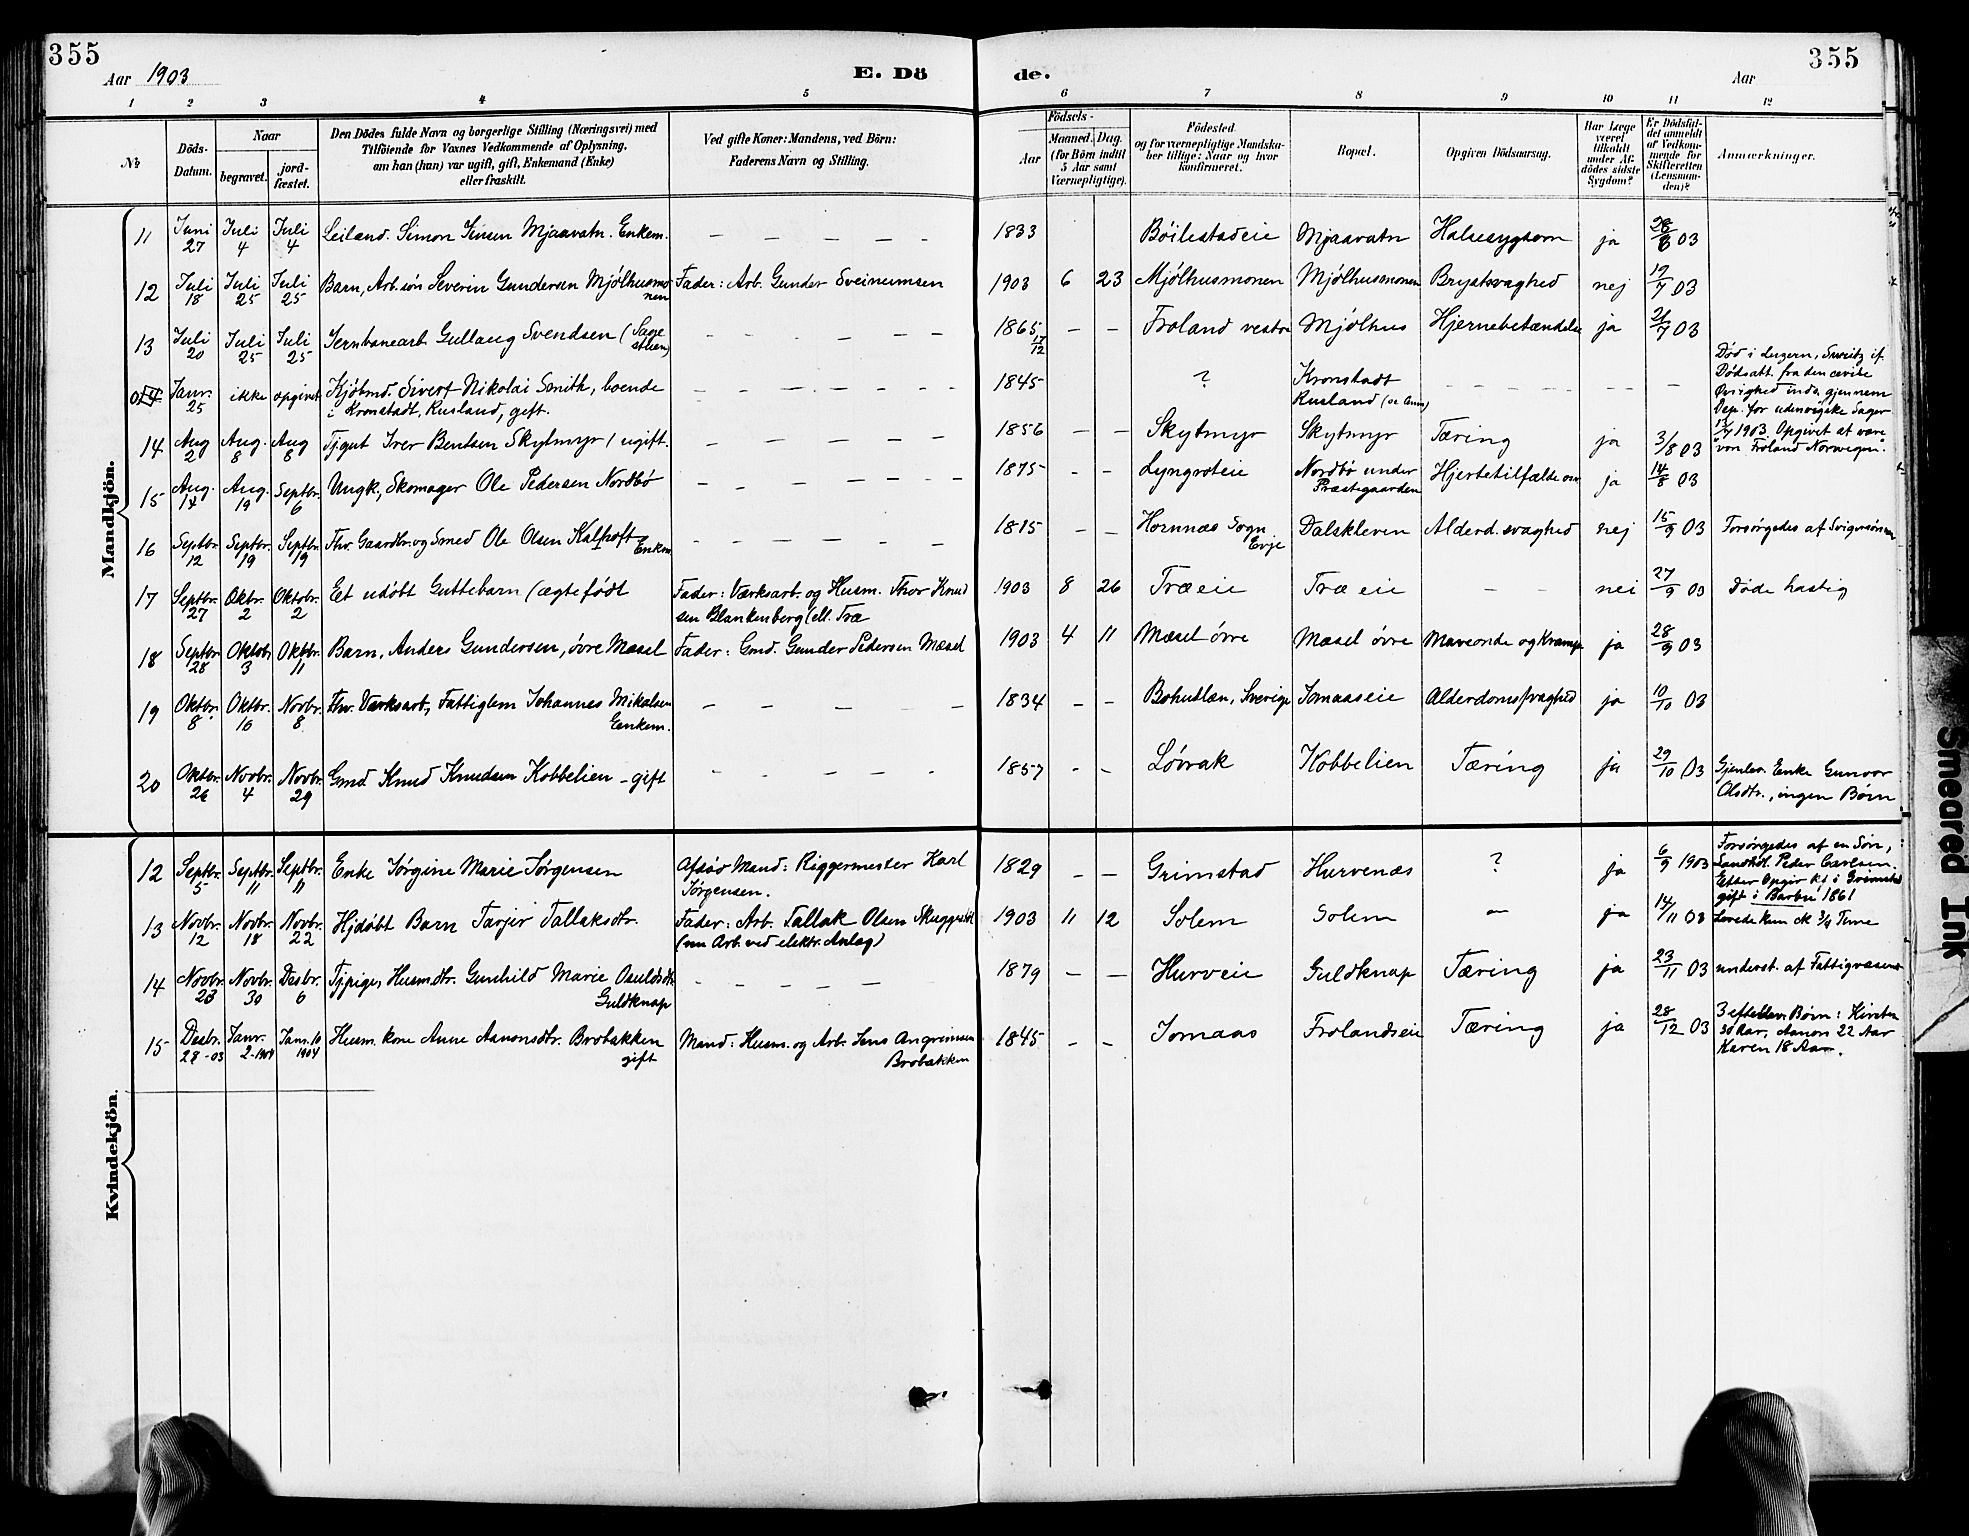 355
355
Aar 1903
E. Dö
de.
Aar
1 2 3 4 5 6 7 8 9 10 11 12
No
Döds-Datum.
Naar
begravet.
jord-fæstet.
Den Dödes fulde Navn og borgerlige Stilling (Næringsvei) med
Tilföiende for Voxnes Vedkommende af Oplysning,
om han (hun) var ugift, gift, Enkemand (Enke)
eller fraskilt.
Ved gifte Koner: Mandens, ved Börn:
Faderens Navn og Stilling.
Födsels-
Aar
Maaned. Dag.
(for Börn indtil
5 Aar samt
Værnepligtige).
Födested
og for værnepligtige Mandska-
ber tillige: Naar og hvor
konfirmeret.
Bopæl.
Opgiven Dödsaarsag.
Har Læge
været
tilkaldt
under Af-
dödes sidste
Sygdom?
Er Dödsfal-
det anmeldt
af Vedkom-
mende for
Skifteretten
(Lensman-
den)?
Anmærkninger.
Mandkjön.
11 Juni 27 Juli 4 Juli 4 Leiland. Simon Jensen Mjaavatn. Enkem. — — — — — 1833 Böilestadeie Mjaavatn Halssygdom ja 28/6 03
12 Juli 18 Juli 25 Juli 25 Barn, Arb.søn Severin Gundersen Mjölhusmonen Fader: Arb. Gunder Sveinumsen 1903 6 23 Mjölhusmonen Mjölhusmonen Brystsvaghed nej 19/7 03
13 Juli 20 Juli 25 Juli 25 Jernbanearb Gullaug Svendsen (Sagestuen) — — — — — 1865 17/12 — — Froland vestre Mjölhus Hjernebetændelse ja 21/7 03
Janr. 25 ikke opgivet Kjöbmd. Sivert Nikolai Smith, boende
i Kronstadt, Rusland, gift. — — — — — 1845 ? Kronstadt
Rusland — — — — — —
Död i Luzern, Sweitz if.
Dödsatt. fra den civile
Övrighed inds. gjennem
Dep. for udenrigske Sager
1903. Opgivet at være
"von Froland Norwegen".
14 Aug 2 Aug. 8 Aug 8 Tjgut Iver Bentsen Skytmyr, ugift. — — — — — 1856 — — Skytmyr Skytmyr Tæring ja 3/8 03
15 Aug. 14 Aug. 19 Septbr. 6 Ungk, Skomager Ole Pedersen Nordbö — — — — — 1875 - - Lyngroteie Nordbö under
Præstegaarden Hjertetilfælde ja 14/8 03
16 Septbr. 12 Septbr. 19 Septbr. 19 Fhv. Gaardbr. og Smed Ole Olsen Kalhoft Enkem — — — — — 1815 — — Hornnæs Sogn
Evje Dalskleven Alderd.svaghed nej 15/9 03 Forsörgedes af Svigersönnen
17 Septbr. 27 Oktbr. 2 Oktobr. 2 Et udöbt Guttebarn (ægtefödt Fader: Værksarb. og Husm. Thor Knud
sen Blankenberg (ell. Træ 1903 8 26 Træeie Træeie — — nei 27/9 03 Döde hastig
18 Septbr 28 Oktobr. 3 Oktbr. 11 Barn, Anders Gundersen, övre Mæsel Fader: Gmd. Gunder Pedersen Mæsel 1903 4 11 Mæsel övre Mæsel övre Maveonde og Krampe ja 28/9 03
19 Oktbr. 8 Oktbr. 16 Novbr. 8 Fhv. Værksarb, Fattiglem Johannes Mikalsen
Enkem. — — — — — 1834 - - Bohuslæn, Sverige Jomaaseie Alderdomssvaghed ja 10/10 03
20 Oktbr. 26 Novbr. 4 Novbr. 29 Gmd Knud Knudsen Kobbelien - gift — — — — — 1857 - - Lövrak Kobbelien Tæring ja 29/10 03 Gjenlev. Enke Gunvor
Olsdtr., ingen Börn
Kvindekjön.
12 Septbr. 5 Septbr. 11 Septbr. 11 Enke Jörgine Marie Jörgensen Afdöd Mand: Riggermester Karl
Jörgensen. 1829 — — Grimstad Hurvenæs ? ja 6/9 1903 Forsörgedes af en Sön,
Peder Carlsen.
Efter Opgiv kf. i Grimstad
gift i Barbu 1861
13 Novbr. 12 Novbr. 18 Novbr. 22 Hjdöbt Barn Tarjer Tallaksdtr. Fader: Arb. Tallak Olsen
(nu Arb. ved elektr. Anlæg) 1903 11 12 Solem Solem — ja 14/11 03 Levede kun ck 3/4 Time
14 Novbr. 23 Novbr. 30 Desbr. 6 Tjpige, Husmdtr. Gunhild Marie Osuldsdtr
Guldknap — — — — — 1879 — — Hurveie Guldknap Tæring ja 23/11 03 underst. af Fattigvæsenet
15 Desbr. 28-03 Janr. 2-1904 Jan. 10 1904 Husm. kone Anne Aanonsdtr. Brobakken
gift Mand: Husm. og Arb. Jens Angrimsen
Brobakken 1845 - - Jomaas Frolandseie Tæring ja 28/12 03 3 efterlev. Börn: Kirsten
30 Aar, Aanon 22 Aar
Karen 18 Aar.
Smeared Ink